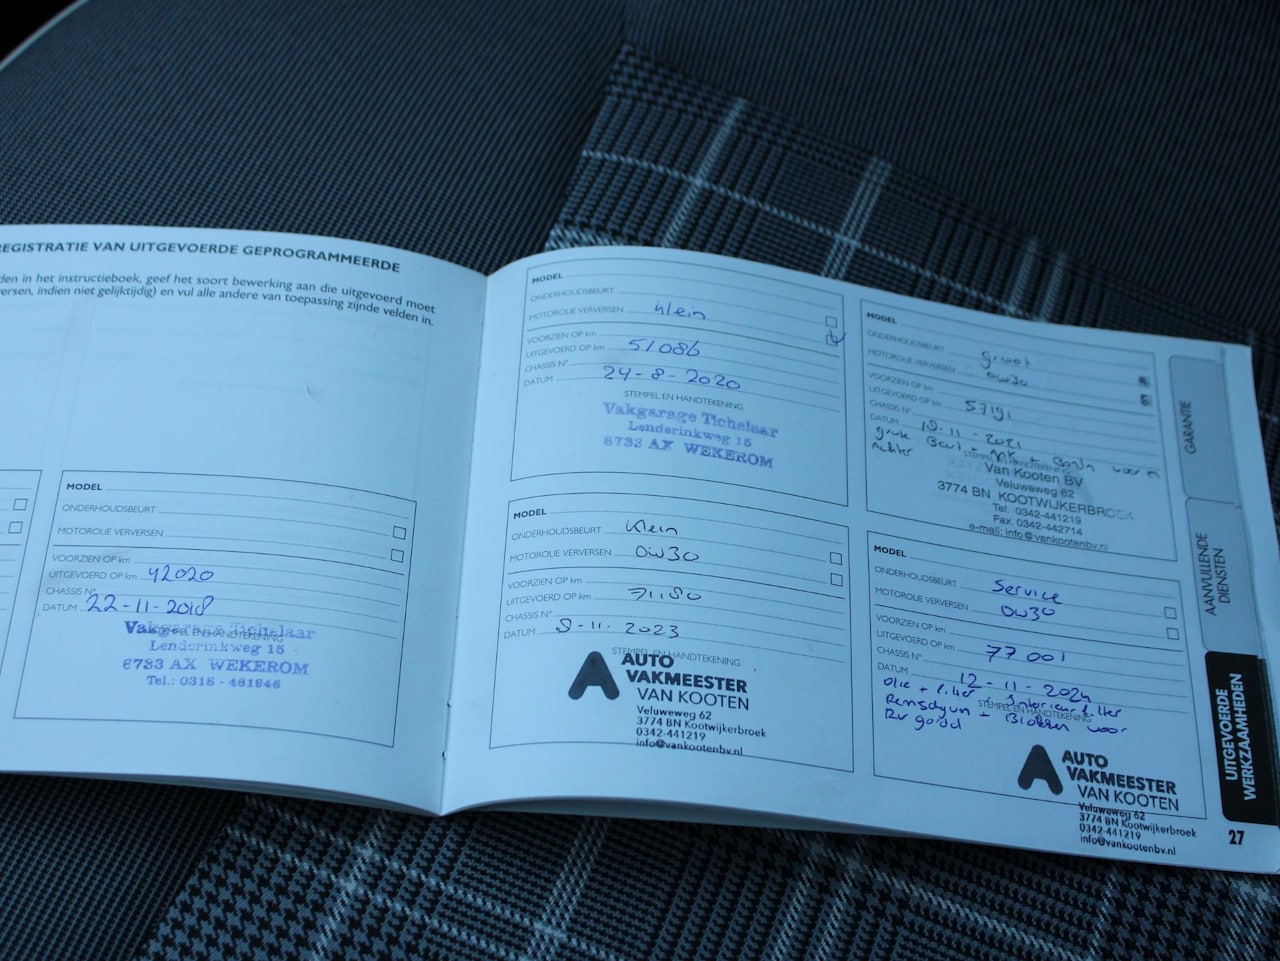 REGISTRATIE VAN UITGEVOERDE GEPROGRAMMEERDE
den in het instructieboek, geef het soort bewerking aan die uitgevoerd moet
ersen, indien niet gelijktijdig) en vul alle andere van toepassing zijnde velden in.
MODEL
ONDERHOUDSBEURT
MOTOROLIE VERVERSEN
VOORZIEN OP km
UITGEVOERD OP km 42020
CHASSIS N°
DATUM 22-11-2018
STEMPEL EN HANDTEKENING
Vakgarage Tichelaar
Lenderinkweg 15
6733 AX WEKEROM
Tel.: 0318 - 461946
MODEL
ONDERHOUDSBEURT
MOTOROLIE VERVERSEN klein
VOORZIEN OP km
UITGEVOERD OP km 51086
CHASSIS N°
DATUM 24-8-2020
STEMPEL EN HANDTEKENING
Vakgarage Tichelaar
Lenderinkweg 15
6733 AX WEKEROM
MODEL
ONDERHOUDSBEURT Klein
MOTOROLIE VERVERSEN 0W30
VOORZIEN OP km
UITGEVOERD OP km 71180
CHASSIS N°
DATUM 9-11-2023
STEMPEL EN HANDTEKENING
AUTO
VAKMEESTER
VAN KOOTEN
Veluweweg 62
3774 BN Kootwijkerbroek
0342-441219
info@vankootenbv.nl
MODEL
ONDERHOUDSBEURT groot
MOTOROLIE VERVERSEN 0W30
VOORZIEN OP km
UITGEVOERD OP km 57191
CHASSIS N°
DATUM 18-11-2021
grote Beurt + APK + Banden voor en
Achter
STEMPEL EN HANDTEKENING
Van Kooten BV
Veluweweg 62
3774 BN KOOTWIJKERBROEK
Tel. 0342-441219
Fax. 0342-442714
e-mail: info@vankootenbv.nl
MODEL
ONDERHOUDSBEURT Service
MOTOROLIE VERVERSEN 0W30
VOORZIEN OP km
UITGEVOERD OP km 77001
CHASSIS N°
DATUM 12-11-2024
Olie + filter + Interieurfilter
STEMPEL EN HANDTEKENING
Remschijven + Blokken voor
RV goed
AUTO
VAKMEESTER
VAN KOOTEN
Veluweweg 62
3774 BN Kootwijkerbroek
0342-441219
info@vankootenbv.nl
GARANTIE
AANVULLENDE
DIENSTEN
UITGEVOERDE
WERKZAAMHEDEN
27